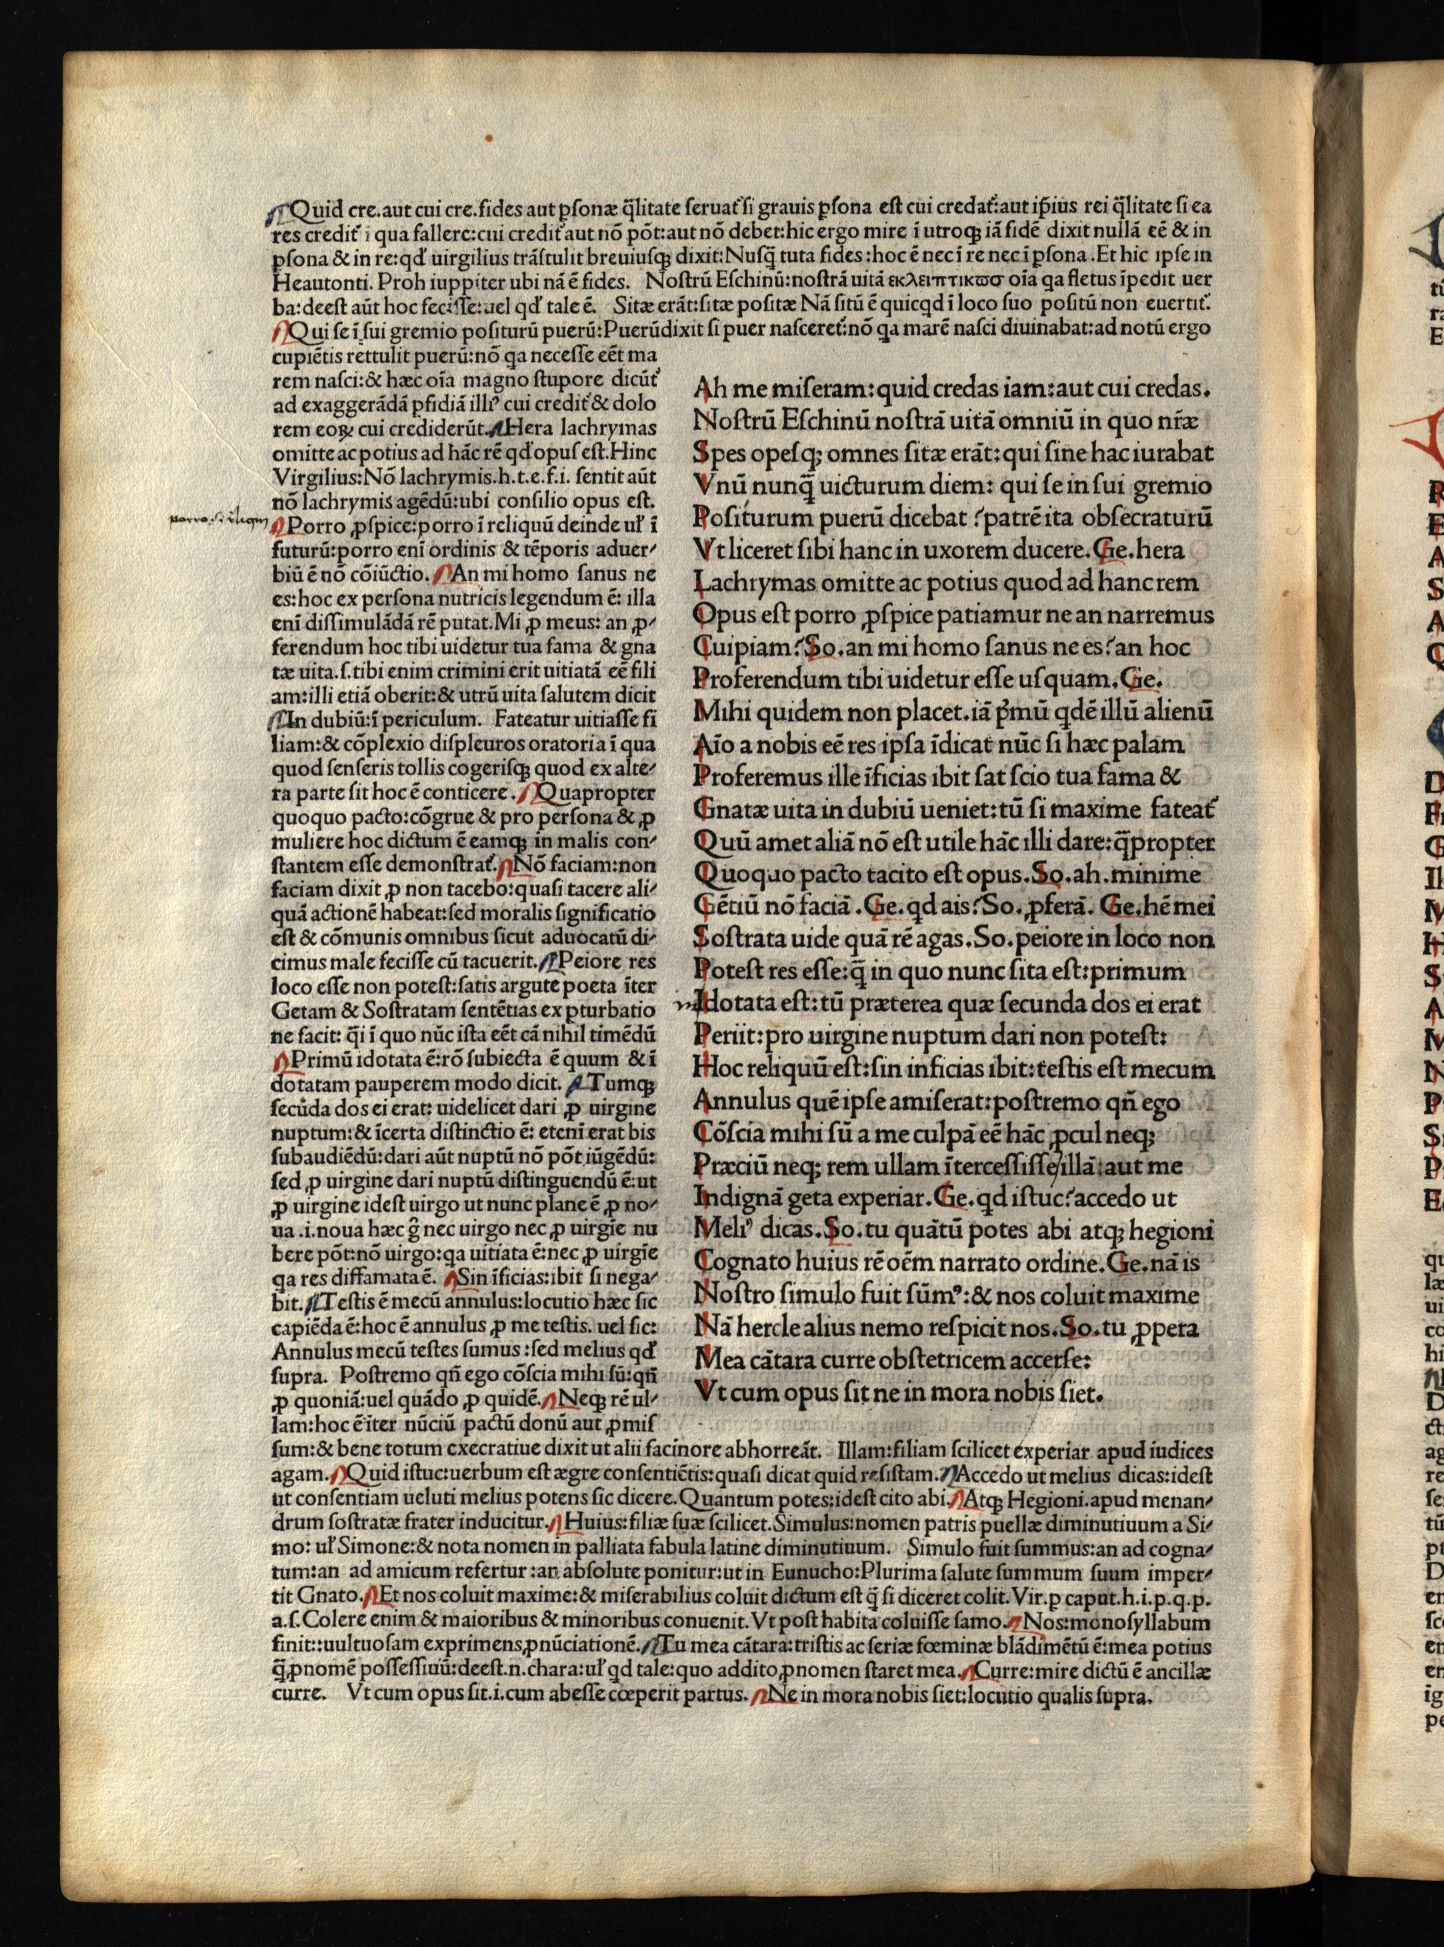 Quid cre.aut cui cre.fides aut ꝑſonæ q̃litate ſeruat᷑ ſi grauis ꝑſona eſt cui credat᷑:aut ip̃ius rei q̃litate ſi ea
res credit᷑ ĩ qua fallere:cui credit᷑ aut nõ põt:aut nõ debet:hic ergo mire ĩ utroqꝫ iã fidẽ dixit nullã eẽ & in
ꝑſona & in re:qđ uirgilius trãſtulit breuiuſqꝫ dixit:Nuſq̃ tuta fides:hoc ẽ nec ĩ re nec ĩ ꝑſona.Et hic ipſe in
Heautonti. Proh iuppiter ubi nã ẽ fides. Noſtrũ Eſchinũ:noſtrã uitã εκλειπτικωσ oĩa qa fletus ĩpedit uer
ba:deeſt aũt hoc feciſſe:uel qđ tale ẽ. Sitæ erãt:ſitæ poſitæ Nã ſitũ ẽ quicqd ĩ loco ſuo poſitũ non euertit᷑.
Qui ſe ĩ ſui gremio poſiturũ puerũ:Puerũdixit ſi puer naſceret᷑:nõ qa marẽ naſci diuinabat:ad notũ ergo
cupiẽtis rettulit puerũ:nõ qa neceſſe eẽt ma
rem naſci:& hæc oĩa magno ſtupore dicũt᷑
ad exaggerãdã ꝑfidiã illiꝰ cui credit᷑ & dolo
rem eoꝝ cui crediderũt.Hera lachrymas
omitte ac potius ad hãc rẽ qđ opuſ eſt.Hinc
Virgilius:Nõ lachrymis.h.t.e.f.i. ſentit aũt
nõ lachrymis agẽdũ:ubi conſilio opus eſt.
Porro ꝓſpice:porro ĩ reliquũ deinde ul᷑ ĩ
futurũ:porro enĩ ordinis & tẽporis aduer⸗
biũ ẽ nõ cõiũctio.An mi homo ſanus ne
es:hoc ex perſona nutricis legendum ẽ: illa
enĩ diſſimulãdã rẽ putat.Mi ꝓ meus: an ꝓ⸗
ferendum hoc tibi uidetur tua fama & gna
tæ uita.ſ.tibi enim crimini erit uitiatã eẽ fili
am:illi etiã oberit:& utrũ uita ſalutem dicit
In dubiũ:ĩ periculum. Fateatur uitiaſſe fi
liam:& cõplexio diſpleuros oratoria ĩ qua
quod ſenſeris tollis cogeriſqꝫ quod ex alte⸗
ra parte ſit hoc ẽ conticere.Quapropter
quoquo pacto:cõgrue & pro perſona & ꝓ
muliere hoc dictum ẽ eamqꝫ in malis con⸗
ſtantem eſſe demonſtrat᷑.Nõ faciam:non
faciam dixit ꝓ non tacebo:quaſi tacere ali⸗
quã actionẽ habeat:ſed moralis ſignificatio
eſt & cõmunis omnibus ſicut aduocatũ di⸗
cimus male feciſſe cũ tacuerit.Peiore res
loco eſſe non poteſt:ſatis argute poeta ĩter
Getam & Soſtratam ſentẽtias ex pturbatio
ne facit: q̃i ĩ quo nũc iſta eẽt cã nihil timẽdũ
Primũ idotata ẽ:rõ ſubiecta ẽ quum & ĩ
dotatam pauperem modo dicit. Tumqꝫ
ſecũda dos ei erat: uidelicet dari ꝓ uirgine
nuptum:& ĩcerta diſtinctio ẽ: etenĩ erat bis
ſubaudiẽdũ:dari aũt nuptũ nõ põt iũgẽdũ:
ſed ꝓ uirgine dari nuptũ diſtinguendũ ẽ:ut
ꝓ uirgine ideſt uirgo ut nunc plane ẽ ꝓ no⸗
ua .i.noua hæc g̃ nec uirgo nec ꝓ uirgĩe nu
bere põt:nõ uirgo:qa uitiata ẽ:nec ꝓ uirgĩe
qa res diffamata ẽ. Sin ĩficias:ibit ſi nega⸗
bit.Teſtis ẽ mecũ annulus:locutio hæc ſic
capiẽda ẽ:hoc ẽ annulus ꝓ me teſtis. uel ſic:
Annulus mecũ teſtes ſumus:ſed melius qđ
ſupra. Poſtremo qñ ego cõſcia mihi ſũ:qñ
ꝓ quoniã:uel quãdo ꝓ quidẽ.Neqꝫ rẽ ul⸗
lam:hoc ẽ iter nũciũ pactũ donũ aut ꝓmiſ
ſum:& bene totum execratiue dixit ut alii facinore abhorreãt. Illam:filiam ſcilicet experiar apud iudices
agam.Quid iſtuc:uerbum eſt ægre conſentiẽtis:quaſi dicat quid reſiſtam.Accedo ut melius dicas:ideſt
ut conſentiam ueluti melius potens ſic dicere.Quantum potes:ideſt cito abi.Atqꝫ Hegioni.apud menan⸗
drum ſoſtratæ frater inducitur.Huius:filiæ ſuæ ſcilicet.Simulus:nomen patris puellæ diminutiuum a Si⸗
mo: ul᷑ Simone:& nota nomen in palliata fabula latine diminutiuum. Simulo fuit ſummus:an ad cogna⸗
tum:an ad amicum refertur:an abſolute ponitur:ut in Eunucho:Plurima ſalute ſummum ſuum imper⸗
tit Gnato.Et nos coluit maxime:& miſerabilius coluit dictum eſt q̃ ſi diceret colit.Vir.ꝑ caput.h.i.p.q.p.
a.ſ.Colere enim & maioribus & minoribus conuenit.Vt poſt habita coluiſſe ſamo.Nos:monoſyllabum
finit::uultuoſam exprimens ꝓnũciationẽ.Tu mea cãtara:triſtis ac ſeriæ fœminæ blãdimẽtũ ẽ:mea potius
q̃ ꝓnomẽ poſſeſſiuũ:deeſt.n.chara:ul᷑ qd tale:quo addito ꝓnomen ſtaret mea.Curre:mire dictũ ẽ ancillæ
curre. Vt cum opus ſit.i.cum abeſſe cœperit partus.Ne in mora nobis ſiet:locutio qualis ſupra.
Ah me miſeram:quid credas iam:aut cui credas.
Noſtrũ Eſchinũ noſtrã uitã omniũ in quo nr̃æ
Spes opeſqꝫ omnes ſitæ erãt:qui ſine hac iurabat
Vnũ nunq̃ uicturum diem: qui ſe in ſui gremio
Poſiturum puerũ dicebat?patrẽ ita obſecraturũ
Vt liceret ſibi hanc in uxorem ducere.Ge.hera
Lachrymas omitte ac potius quod ad hanc rem
Opus eſt porro ꝓſpice patiamur ne an narremus
Cuipiam?So.an mi homo ſanus ne es?an hoc
Proferendum tibi uidetur eſſe uſquam.Ge.
Mihi quidem non placet.iã p̃mũ qdẽ illũ alienũ
Aĩo a nobis eẽ res ipſa ĩdicat nũc ſi hæc palam
Proferemus ille ĩficias ibit ſat ſcio tua fama &
Gnatæ uita in dubiũ ueniet:tũ ſi maxime fateat᷑
Quũ amet aliã nõ eſt utile hãc illi dare:q̃propter
Quoquo pacto tacito eſt opus.So.ah.minime
Gẽtiũ nõ faciã.Ge.qd ais?So.ꝓferã. Ge.hẽ mei
Soſtrata uide quã rẽ agas.So.peiore in loco non
Poteſt res eſſe:q̃ in quo nunc ſita eſt:primum
Idotata eſt:tũ præterea quæ ſecunda dos ei erat
Periit:pro uirgine nuptum dari non poteſt:
Hoc reliquũ eſt:ſin inficias ibit:teſtis eſt mecum
Annulus quẽ ipſe amiſerat:poſtremo qñ ego
Cõſcia mihi ſũ a me culpã eẽ hãc ꝓcul neqꝫ
Præciũ neqꝫ rem ullam ĩterceſſiſſe/illã:aut me
Indignã geta experiar.Ge.qd iſtuc?accedo ut
Meliꝰ dicas.So.tu quãtũ potes abi atqꝫ hegioni
Cognato huius rẽ oẽm narrato ordine.Ge.nã is
Noſtro ſimulo fuit ſũmꝰ:& nos coluit maxime
Nã hercle alius nemo reſpicit nos.So.tu ꝓpera
Mea cãtara curre obſtetricem accerſe:
Vt cum opus ſit ne in mora nobis ſiet.